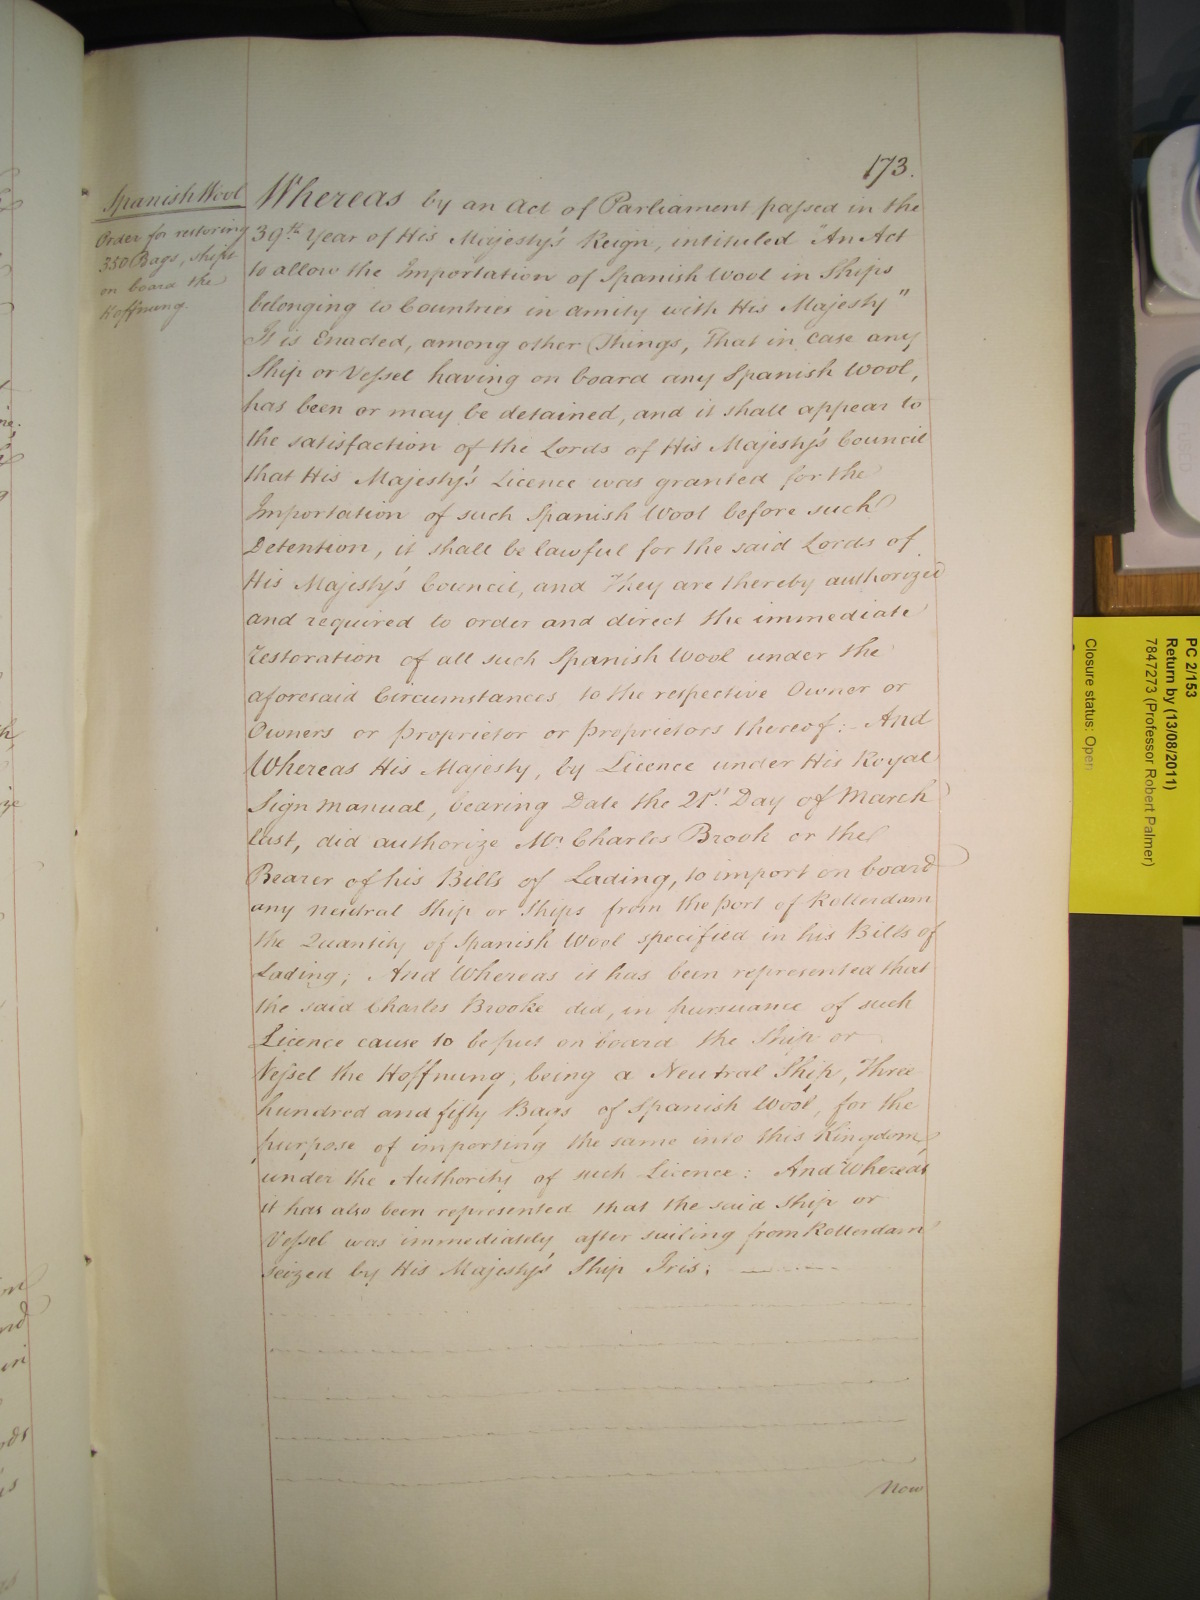 173.
Spanish Wool
Order for restoring
350 Bags, ship't
on board the
Hoffnung.
Whereas by an Act of Parliament passed in the
39th Year of His Majesty's Reign, intituled "An Act
to allow the Importation of Spanish Wool in Ships
belonging to Countries in amity with His Majesty"
It is Enacted, among other Things, That in case any
Ship or Vessel having on board any Spanish Wool,
has been or may be detained, and it shall appear to
the satisfaction of the Lords of His Majesty's Council
that His Majesty's Licence was granted for the
Importation of such Spanish Wool before such
Detention, it shall be lawful for the said Lords of
His Majesty's Council, and They are thereby authorized
and required to order and direct the immediate
restoration of all such Spanish Wool under the
aforesaid Circumstances to the respective Owner or
Owners or proprietor or proprietors thereof:- And
Whereas His Majesty, by Licence under His Royal
Sign Manual, bearing Date the 21st Day of March
last, did authorize Mr Charles Brook or the
Bearer of his Bills of Lading, to import on board
any neutral Ship or Ships from the port of Rotterdam
the Quantity of Spanish Wool specified in his Bills of
Lading; And Whereas it has been represented that
the said Charles Brooke did, in pursuance of such
Licence cause to be put on board the Ship or
Vessel the Hoffnung, being a Neutral Ship, Three
hundred and fifty Bags of Spanish Wool, for the
purpose of importing the same into this Kingdom,
under the Authority of such Licence: And Whereas
it has also been represented that the said Ship or
Vessel was immediately after sailing from Rotterdam
seized by His Majesty's Ship Iris;
Now
PC 2/153
Return by (13/08/2011)
7847273 (Professor Robert Palmer)
Closure status: Open